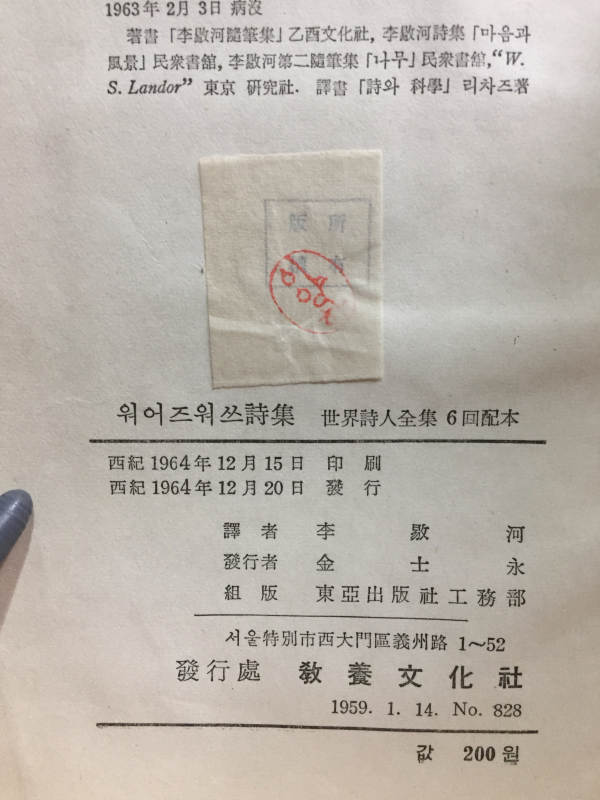 1963年 2月 3日 病沒
著書「李敭河隨筆集」乙酉文化社, 李敭河詩集「마음과
風景」民衆書館, 李敭河第二隨筆集「나무」民衆書館,“W.
S. Landor” 東京 研究社. 譯書「詩와 科學」리차즈著
版 所
權 有
워어즈워쓰詩集 世界詩人全集 6回配本
西紀 1964年 12月 15日 印刷
西紀 1964年 12月 20日 發行
譯者 李敭河
發行者 金士永
組版 東亞出版社工務部
서울特別市西大門區義州路 1~52
發行處 教養文化社
1959. 1. 14. No. 828
값 200원